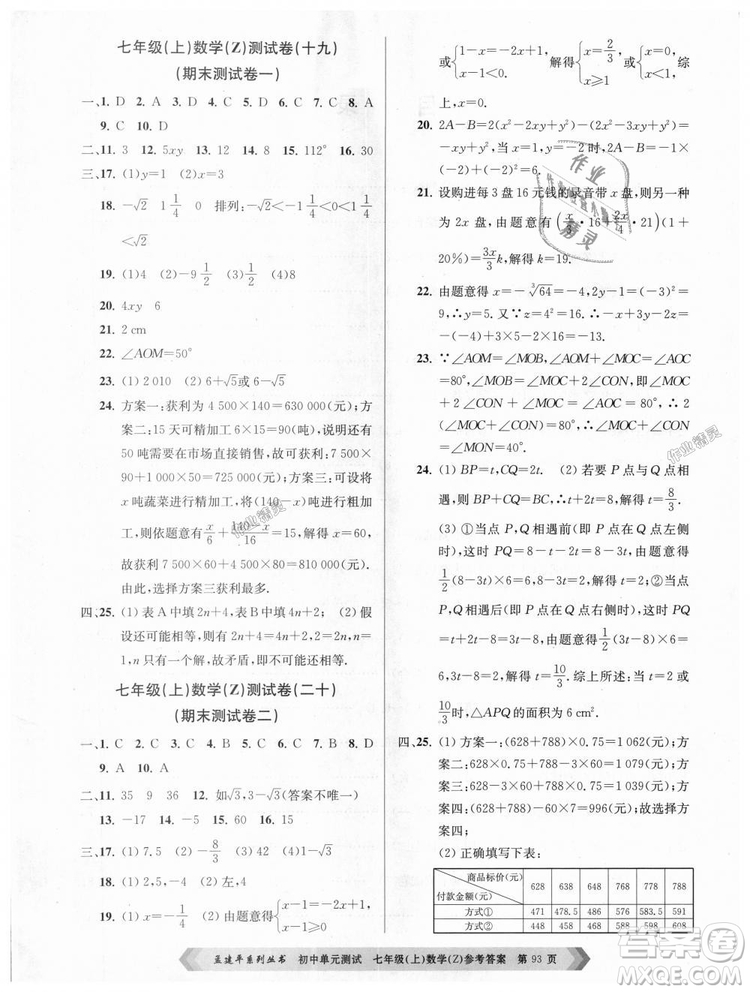 七年级(上)数学(Z)测试卷(十九)
(期末测试卷一)
一、1. D 2. A 3. D 4. B 5. C 6. B 7. C 8. A
9. C 10. D
二、11. 3 12. 5xy 13. 9 14. 8.5 15. 112° 16. 30
三、17. (1)y=1 (2)x=3
18. -√2 1 1/4 0 排列:-√2<-1 1/4<0<1 1/4
<√2
19. (1)4 (2)-9 1/2 (3)2 (4)-1 1/2
20. 4xy 6
21. 2 cm
22. ∠AOM=50°
23. (1) 2 010 (2) 6+√5或6-√5
24. 方案一:获利为 4 500×140=630 000(元);方
案二:15 天可精加工 6×15=90(吨),说明还有
50 吨需要在市场直接销售,故可获利 7 500×
90+1 000×50=725 000(元);方案三:可设将
x 吨蔬菜进行精加工,将(140-x)吨进行粗加
工,依题意有 x/6+(140-x)/16=15,解得 x=60,
故获利 7 500×60+4 500×80=810 000(元),
由此,选择方案三获利最多.
四、25. (1) 表 A 中填 2n+4,表 B 中填 4n+2; (2) 假
设还可能相等,则有 2n+4=4n+2,解得 n=
1,n 只可能相等一次,故矛盾,所以不可能相等.
七年级(上)数学(Z)测试卷(二十)
(期末测试卷二)
一、1. C 2. C 3. C 4. B 5. C 6. D 7. B 8. D
9. A 10. A
二、11. 35 9 36 12. 如√3,-√3(答案不唯一)
13. -17 14. 5 15. 60 16. 15
三、17. (1) 7.5 (2) -8/3 (3) 42 (4)1-√3
18. (1) 2,5,-4 (2) 左,4
19. (1) x=-2 (2) 由题意得{x-1=2x+1, x-1>0
或{1-x=2x-1, x-1<0. 解得{x=2/3, x≥1 或{x=2/3, x<1
故 x=9.
20. (1) 2A-B=2(x²-2xy+y²)-(2x²-3xy+2y²)=
-xy; (2) 2A-B=-xy=-(-2)=2.
21. 设购进每 3 盘 16 元钱的录音带 x 盘,则另一种
2x 盘,由题意有(x/3·16+2x/4·21)(1+
20%)=x/3k,解得 k=19.
22. 由题意得 x=-∛64=-4,2y-1=(-3)²=
9,∴y=5.又∵z=4²=16,∴2x+y-z=2×
(-4)+5-16=-13.
23. ∵∠AOM=∠MOB,∠MOC+∠AOC
=80°,∴∠MOC+∠BOM=80°,∠MOC
+2∠CON+∠MOC=80°,∴∠MOC+
∠CON=40°.
24. (1) BP=t,CQ=2t. (2) 若要 P 点与 Q 点相
遇,则要 BP+CQ=BC,∴t+2t=8,解得 t=8/3.
(3) ①当点 P,Q 相遇前(即 P 点在 Q 点左侧
时),这时 PQ=BC-BP-CQ=8-t-2t,由题意得
1/2(8-t-2t)×6=6,解得 t=2;②当点
P,Q 相遇后(即 P 点在 Q 点右侧时),这时 PQ
=t+2t-8=3t-8,由题意得1/2(3t-8)×6
=6,解得 t=10/3.综上所述:当运动时间 t=2 或
10/3时,△APQ 的面积为 6 cm².
四、25. (1) 方案一:(628+788)×0.75=1 062(元);方
案二:(628+788)×0.75=1 062(元);方案三:
方案四:(628+788)-420=996(元),故选择方
案四;
(2) 正确填写下表:
商品标价(元) 628 638 648 768 778 788
付款金额(元)
方式① 471 478.5 486 576 583.5 591
方式② 448 458 468 588 598 608
孟建平系列丛书 初中单元测试 七年级(上)数学(Z)参考答案 第 93 页